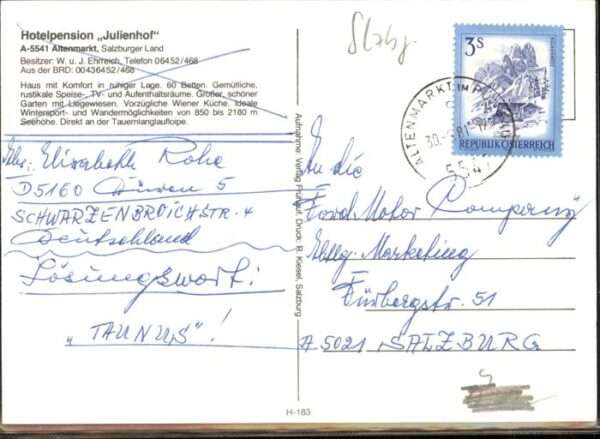 Hotelpension „Julienhof"
A-5541 Altenmarkt, Salzburger Land
Besitzer: W. u. J. Ehrreich, Telefon 06452/468
Aus der BRD: 00436452/468
Haus mit Komfort in ruhiger Lage. 60 Betten. Gemütliche,
rustikale Speise-, TV- und Aufenthaltsräume. Großer, schöner
Garten mit Liegewiesen. Vorzügliche Wiener Küche. Ideale
Wintersport- und Wandermöglichkeiten von 850 bis 2180 m
Seehöhe. Direkt an der Tauernlanglaufloipe.
Abs.: Elisabeth Rohe
D5160 Düren 5
SCHWARZENBROICHSTR. 4
Deutschland
Lösungswort:
„TAUNUS"!
Aufnahme: Verlag Frühauf, Druck: R. Kiesel, Salzburg
H-183
Slzbg
3S
REPUBLIK ÖSTERREICH
ALTENMARKT IM
5541
An die
Ford Motor Company
Abtlg. Marketing
Fürbergstr. 51
A 5021 SALZBURG